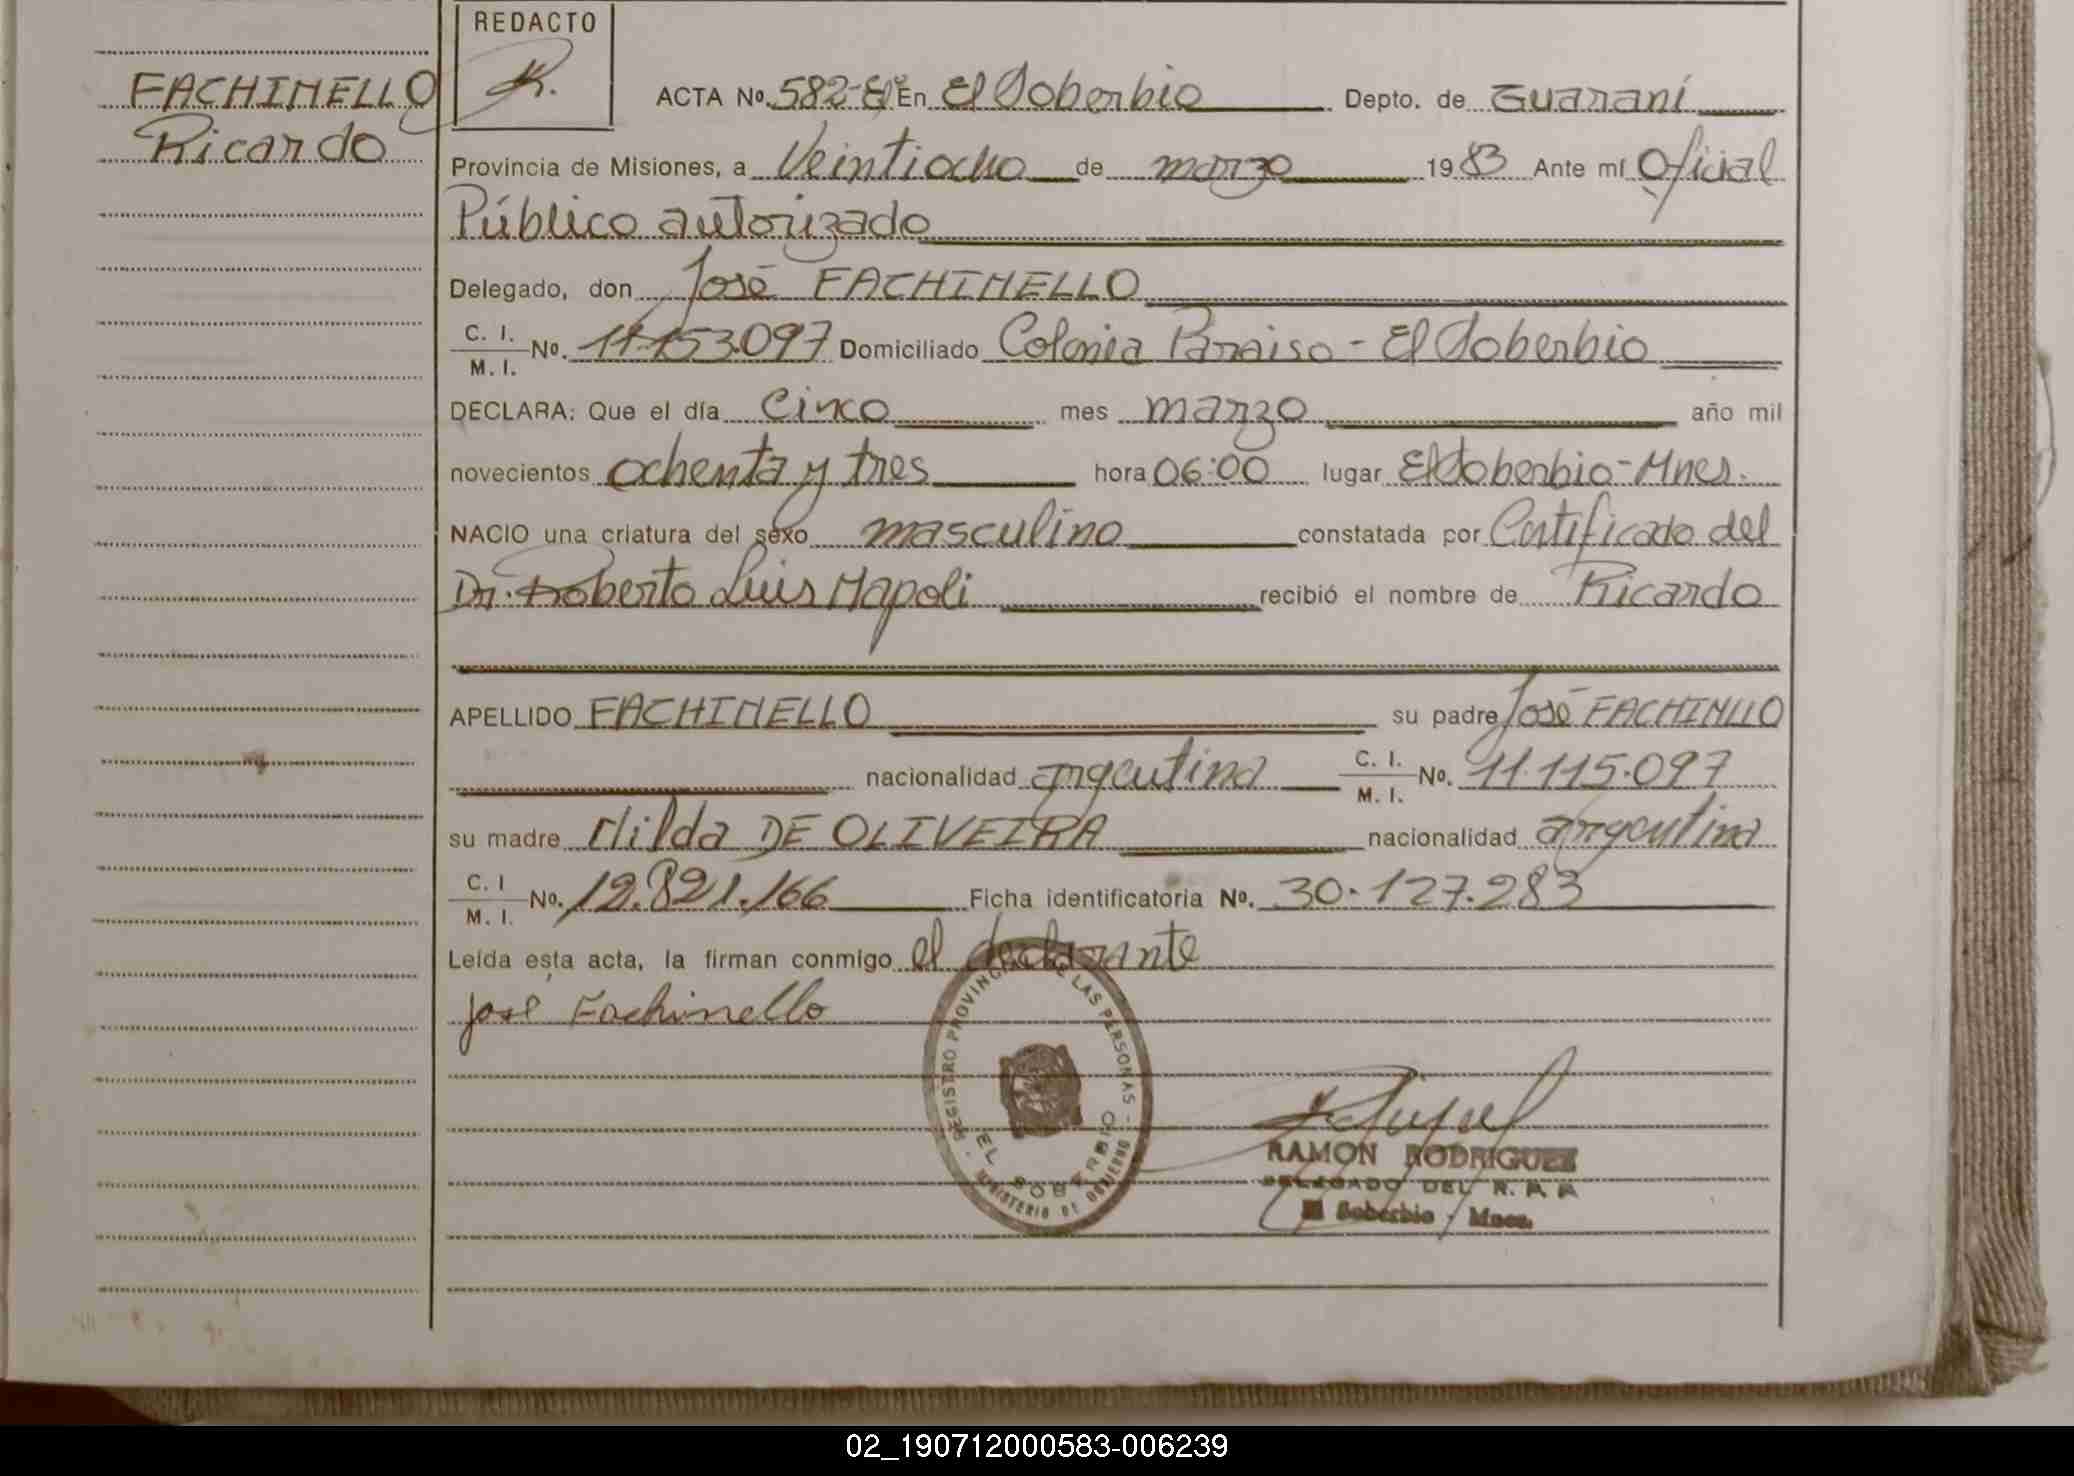 REDACTO
FACHINELLO
Ricardo
ACTA Nº. 582-E En El Soberbio Depto. de Guaraní
Provincia de Misiones, a Veintiocho de marzo 1983 Ante mí Oficial
Público autorizado
Delegado, don José FACHINELLO
C. I. M. I. Nº. 11.153.097 Domiciliado Colonia Paraiso - El Soberbio
DECLARA: Que el día Cinco mes marzo año mil
novecientos ochenta y tres hora 06:00 lugar El Soberbio - Mnes.
NACIO una criatura del sexo masculino constatada por Certificado del
Dr. Roberto Luis Napoli recibió el nombre de Ricardo
APELLIDO FACHINELLO su padre José FACHINLLO
nacionalidad argentina C. I. M. I. Nº. 11.115.097
su madre Nilda DE OLIVEIRA nacionalidad argentina
C. I M. I. Nº. 12.821.166 Ficha identificatoria Nº. 30.127.283
Leída esta acta, la firman conmigo el declarante
José Fachinello
REGISTRO PROVINCIAL DE LAS PERSONAS - MINISTERIO DE GOBIERNO -
EL SOBERBIO
RAMON RODRIGUEZ
DELEGADO DEL R. P. P.
El Soberbio - Mnes.
02_190712000583-006239